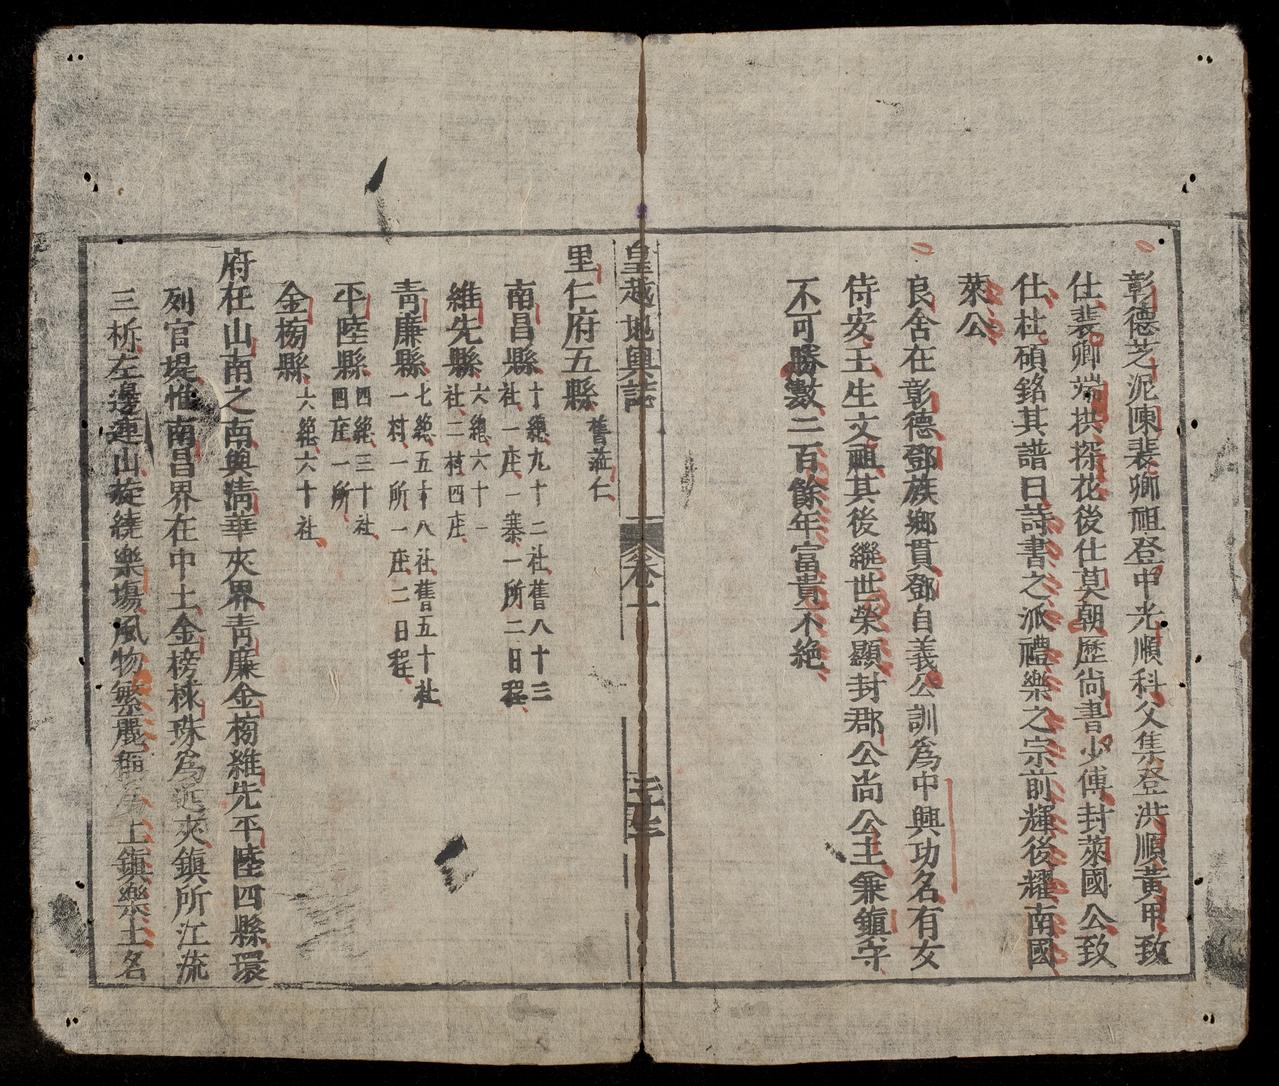 彰德芝泥陳裴卿祖登中光順科父集登洪順黃甲致
仕裴卿端拱探花後仕莫朝歷尚書少傅封萊國公致
仕杜碩銘其譜曰詩書之派禮樂之宗前輝後耀南國
萊公
良舍在彰德鄧族鄉貫鄧自義公訓為中興功名有女
侍安王生文祖其後繼世榮顯封郡公尚公主兼鎮守
不可勝數二百餘年富貴不絶
皇越地輿誌
卷一
里仁府五縣 舊蒞仁
南昌縣 十總九十二社舊八十三
社一庄一寨一所二日程
維先縣 六總六十一
社二村四庄
青廉縣 七總五十八社舊五十社
一村一所一庄二日程
平陸縣 四總三十社
四庄一所
金榜縣 六總六十社
府在山南之南輿清華夾界青廉金榜維先平陸四縣環
列官堤惟南昌界在中土金榜珠為夾鎮所江流
三析左邊連山旋繞樂塲風物繁麗上鎮樂土名